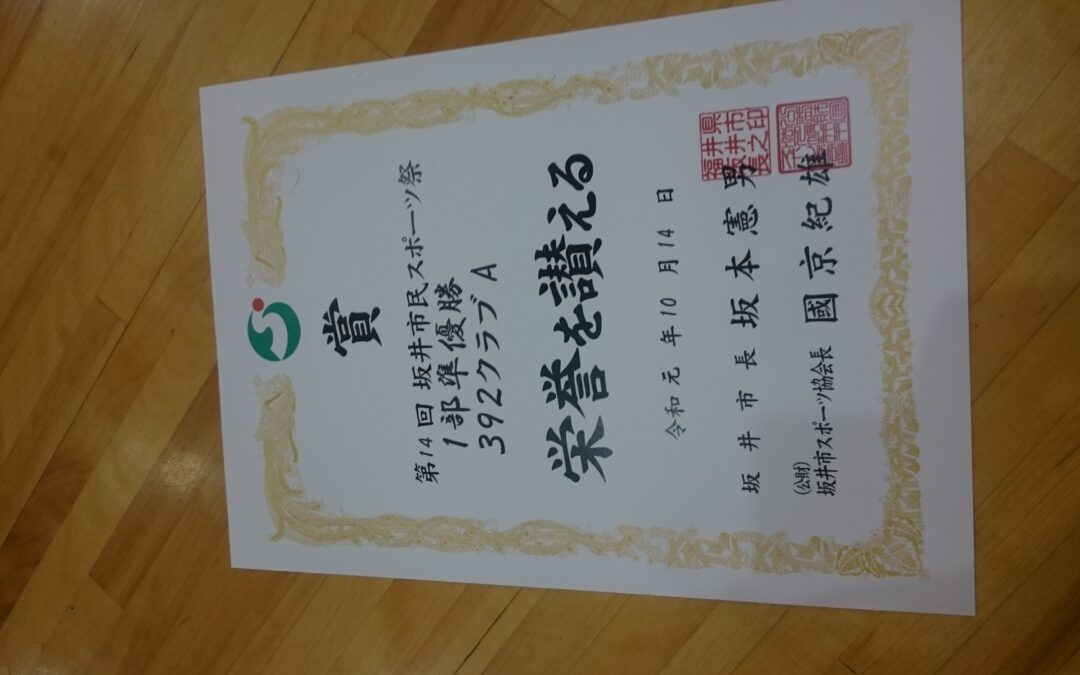 賞
第14回 坂井市民スポーツ祭
1部準優勝
392クラブA
栄誉を讃える
令和元年10月14日
坂井市長 坂本憲男
(公財)
坂井市スポーツ協会長 國京紀雄
福井県坂井市長之印